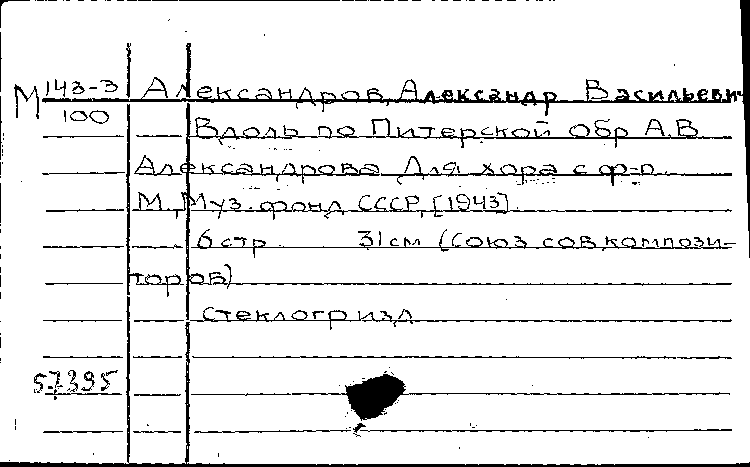 М 143-3
100
Александров, Александр Васильевич
Вдоль по Питерской Обр А.В.
Александрова Для хора с ф-п.
М., Муз. фонд СССР, [1943].
6 стр 31 см (Союз сов. компози-
торов)
Стеклогр изд
57395